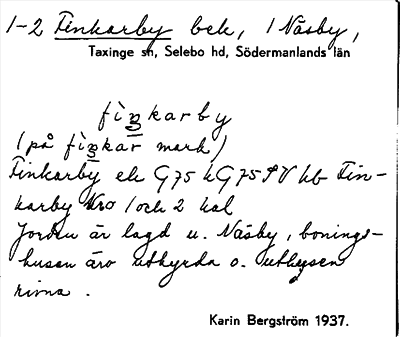 1-2 Finkarby bek, i Näsby,
Taxinge sn, Selebo hd, Södermanlands län
fìŋkarby
(på fìŋkar mark)
Finkarby ek G75 kG75 SV kb Fin-
karby Nro 1 och 2 kal
Jorden är lagd u. Näsby, bonings-
husen äro uthyrda o. uthusen
rivna.
Karin Bergström 1937.